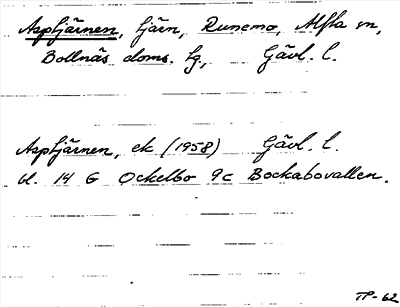 Asptjärnen, tjärn, Runemo, Alfta sn,
Bollnäs doms. tg, Gävl. l.
Asptjärnen, ek (1958) Gävl. l.
bl. 14 G Ockelbo 9c Bockabovallen.
TP-62